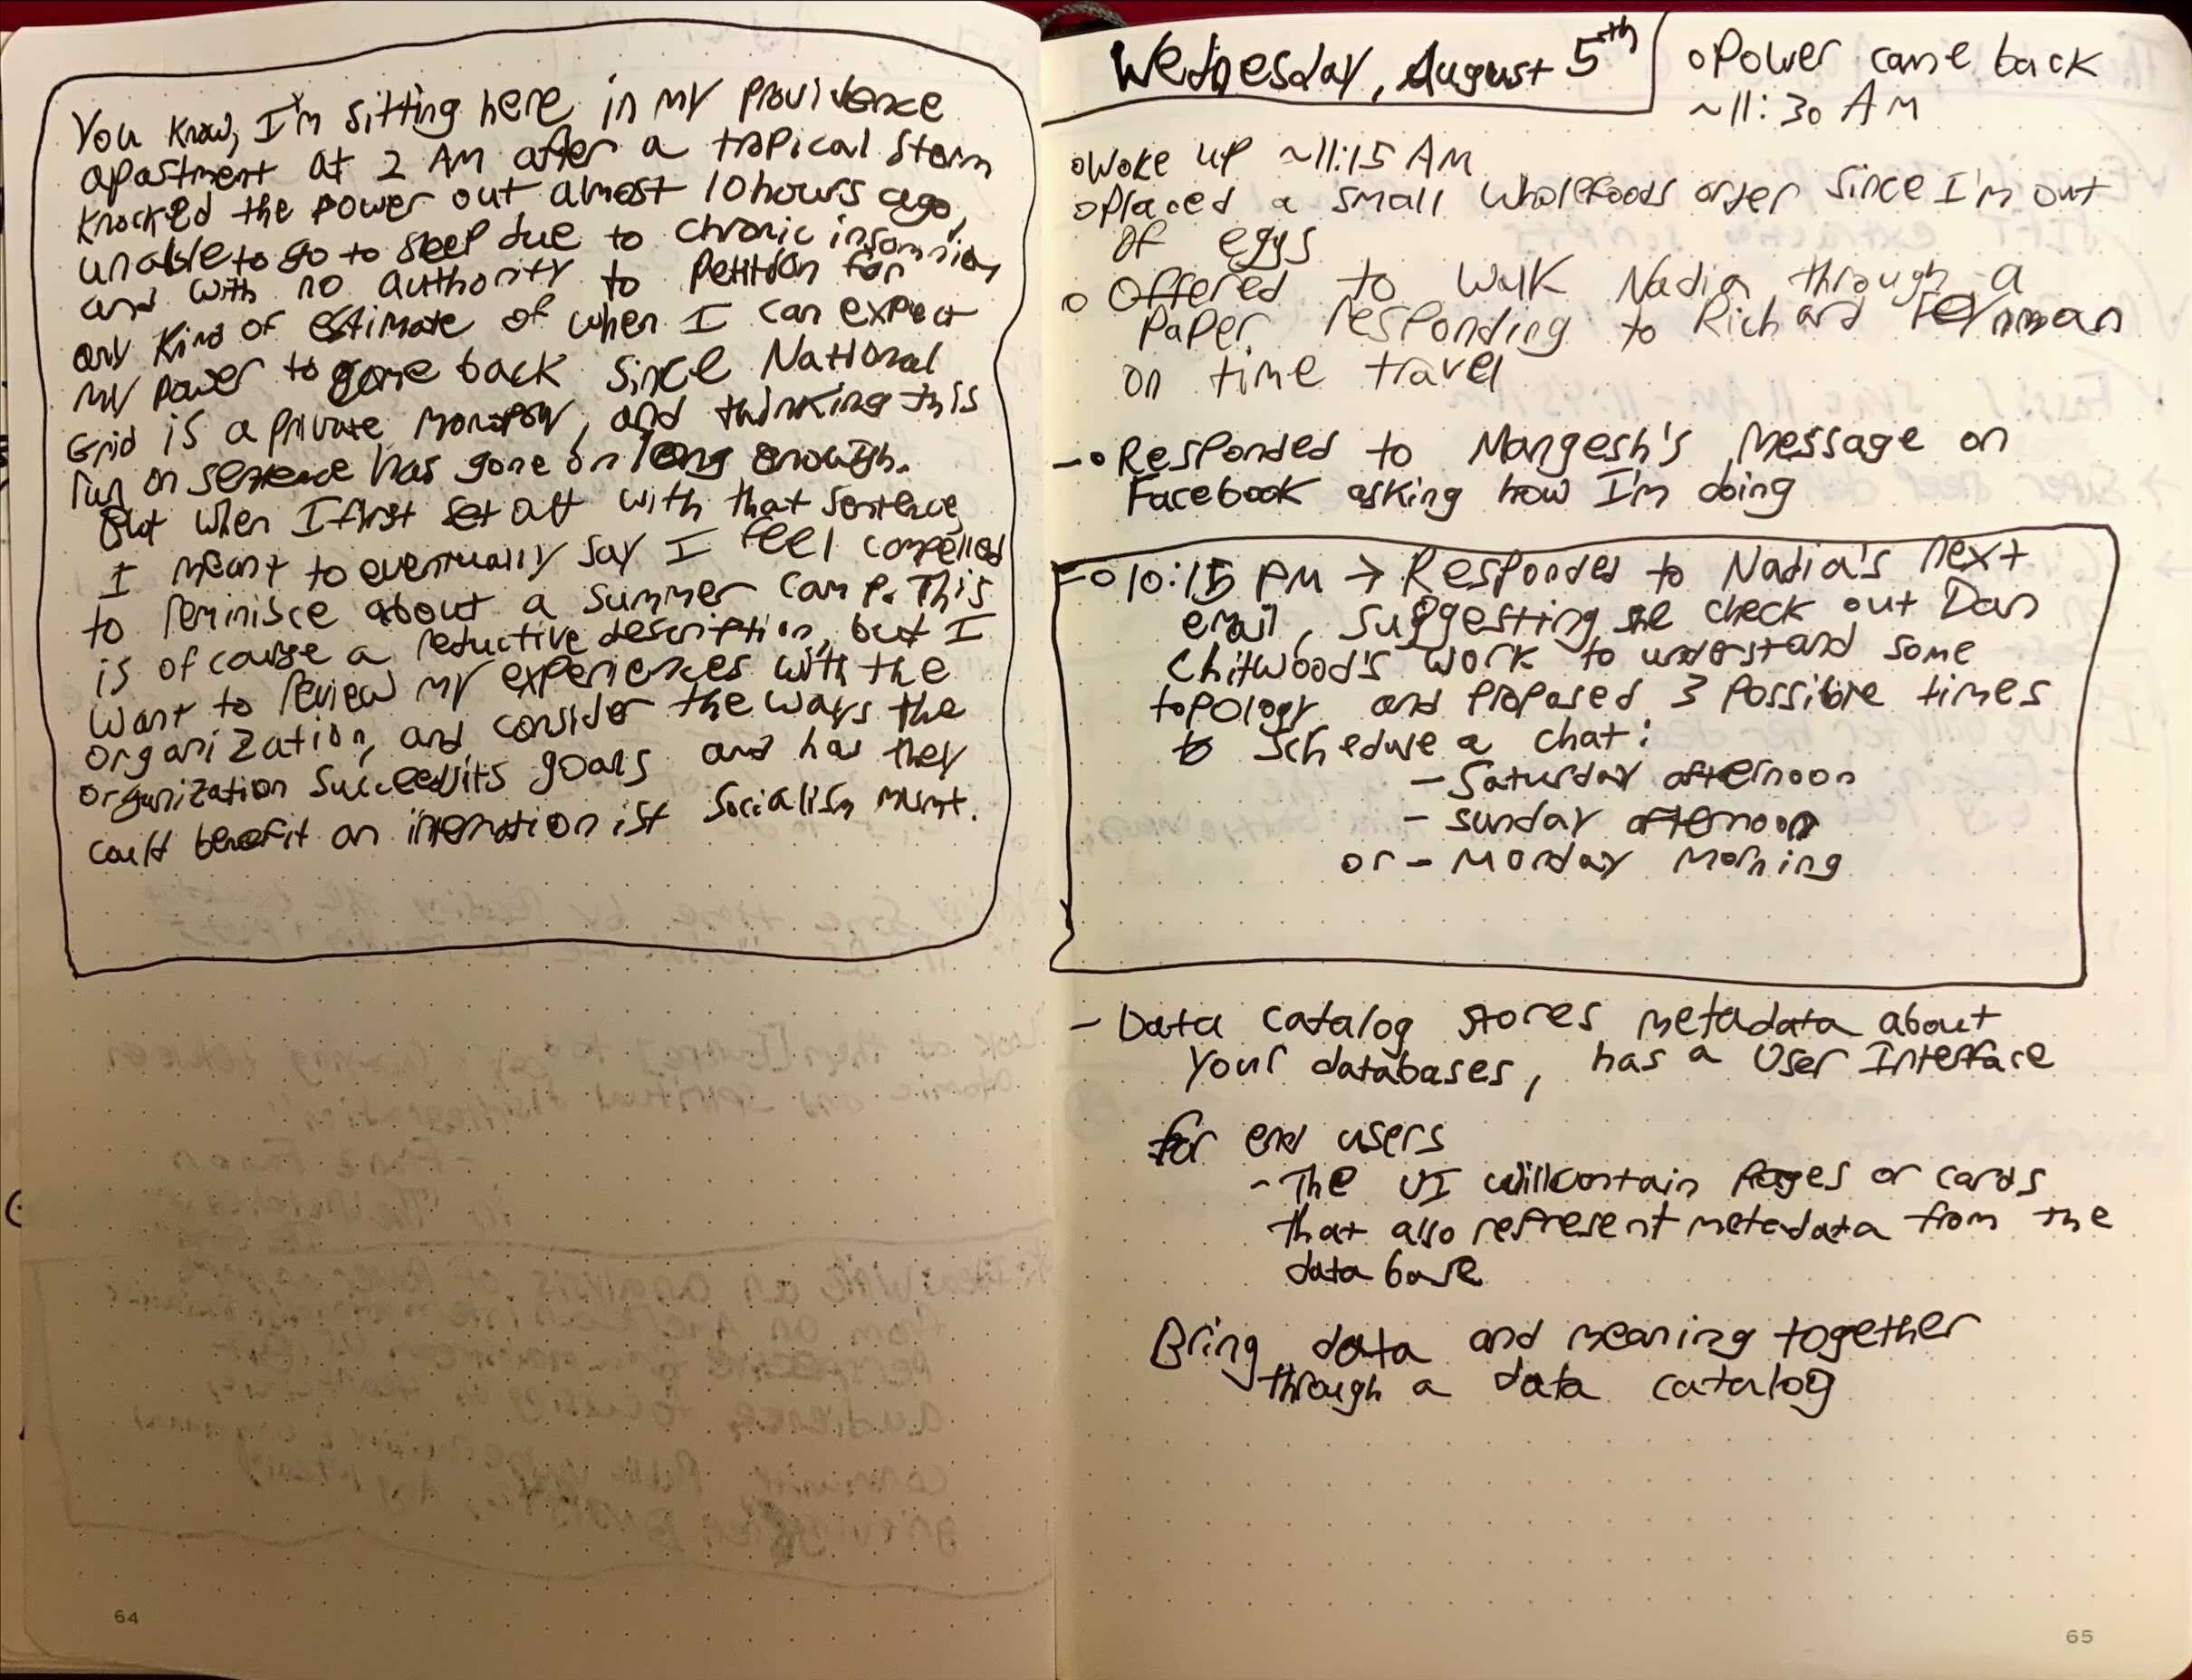 You know, I'm sitting here in my providence
apartment at 2 AM after a tropical storm
knocked the power out almost 10 hours ago,
unable to go to sleep due to chronic insomnia,
and with no authority to petition for
any kind of estimate of when I can expect
my power to come back since National
Grid is a private monopoly, and thinking this
run on sentence has gone on long enough.
But when I first set out with that sentence,
I meant to eventually say I feel compelled
to reminisce about a summer camp. This
is of course a reductive description, but I
want to review my experiences with the
organization, and consider the ways the
organization succeed its goals and has they
could benefit an internationist socialism
Wednesday, August 5th
o Power came back
~11:30 AM
o Woke up ~11:15 AM
o Placed a small Wholefoods order since I'm out
of eggs
o Offered to walk Nadia through a
paper responding to Richard Feynman
on time travel
-o Responded to Mangesh's message on
Facebook asking how I'm doing
-o 10:15 PM → Responded to Nadia's next
email, suggesting she check out Dan
Chitwood's work to understand some
topology and proposed 3 possible times
to schedule a chat:
- Saturday afternoon
- Sunday afternoon
or - Monday morning
- Data catalog stores metadata about
your databases, has a User Interface
for end users
- The UI will contain pages or cards
that also represent metadata from the
database
Bring data and meaning together
through a data catalog
64
65